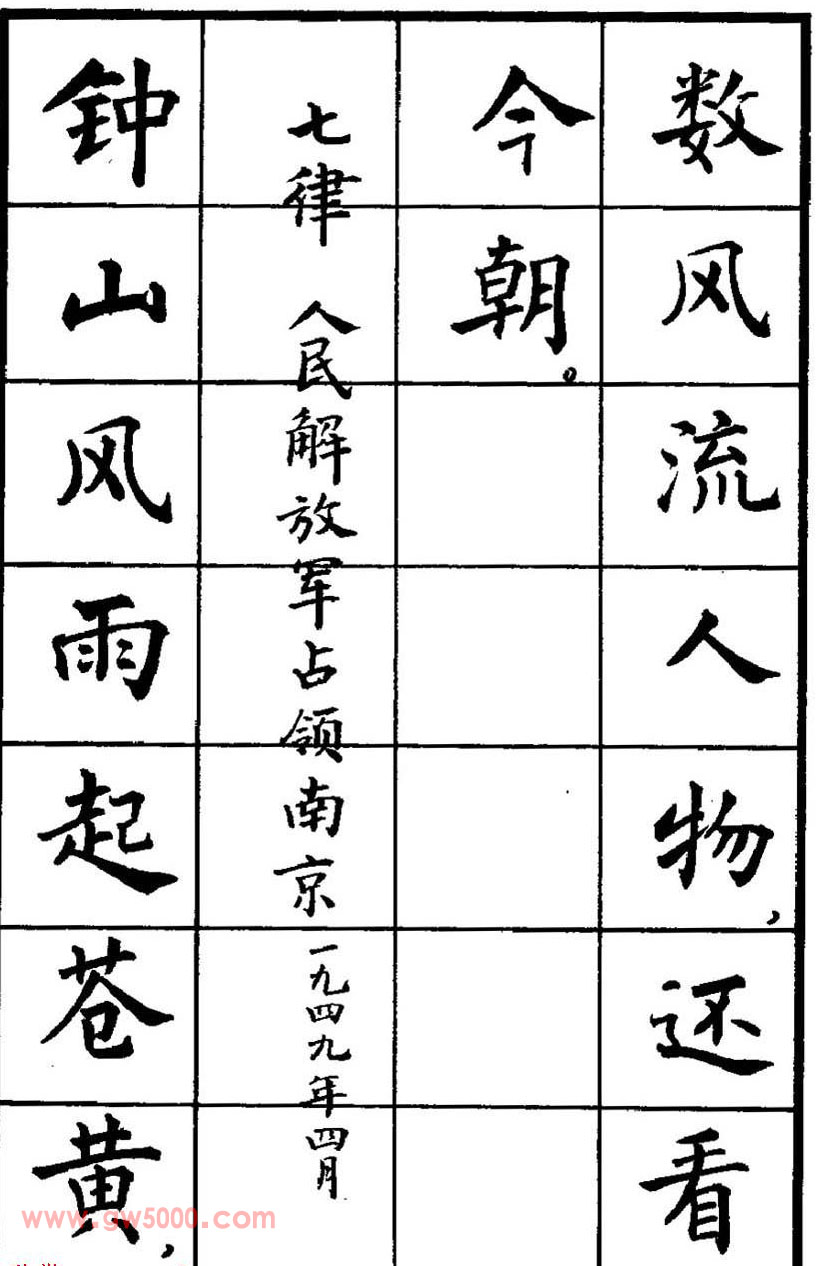 数风流人物,还看
今朝。
七律 人民解放军占领南京 一九四九年四月
钟山风雨起苍黄,
www.gw5000.com